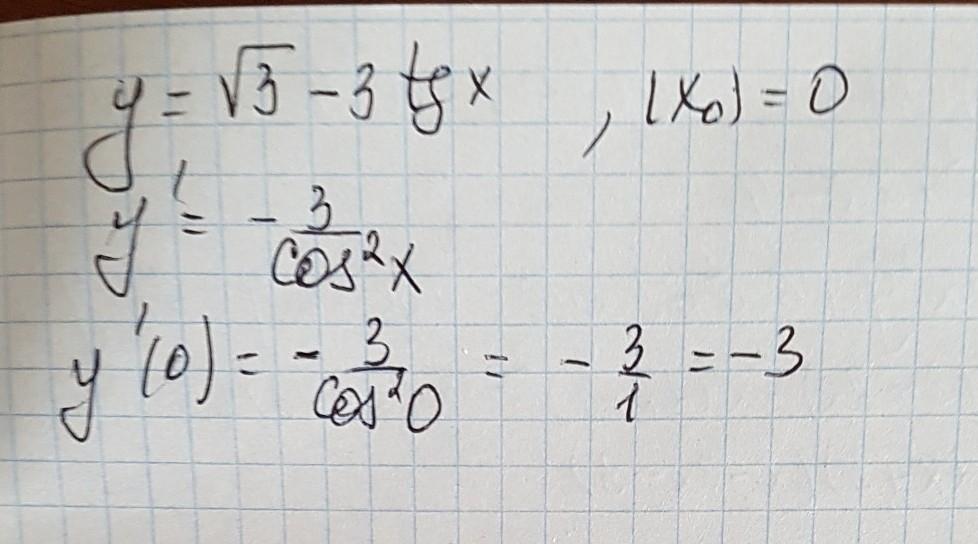 y = √3 - 3 tg x , (x₀) = 0
y' = - 3/cos²x
y'(0) = - 3/cos²0 = - 3/1 = -3